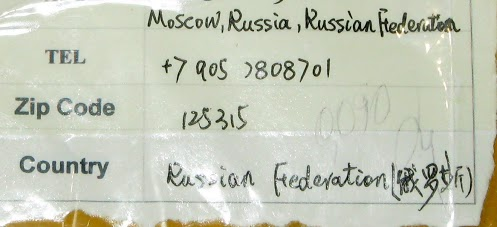 Moscow, Russia, Russian Federation
TEL +7 905 7808701
Zip Code 125315
Country Russian Federation (俄罗斯)